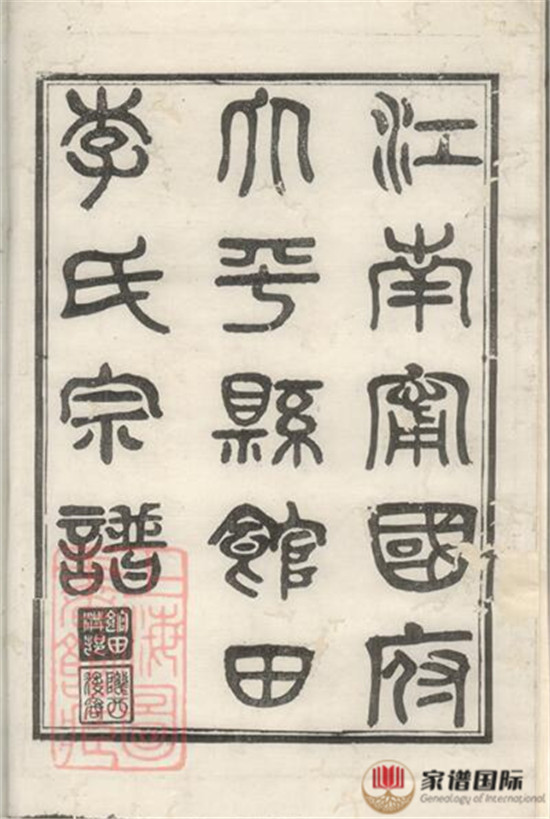 江南甯國府
太平縣館田
李氏宗譜
館田
隴西
後裔
上海圖
書館藏
家谱国际
Genealogy of International